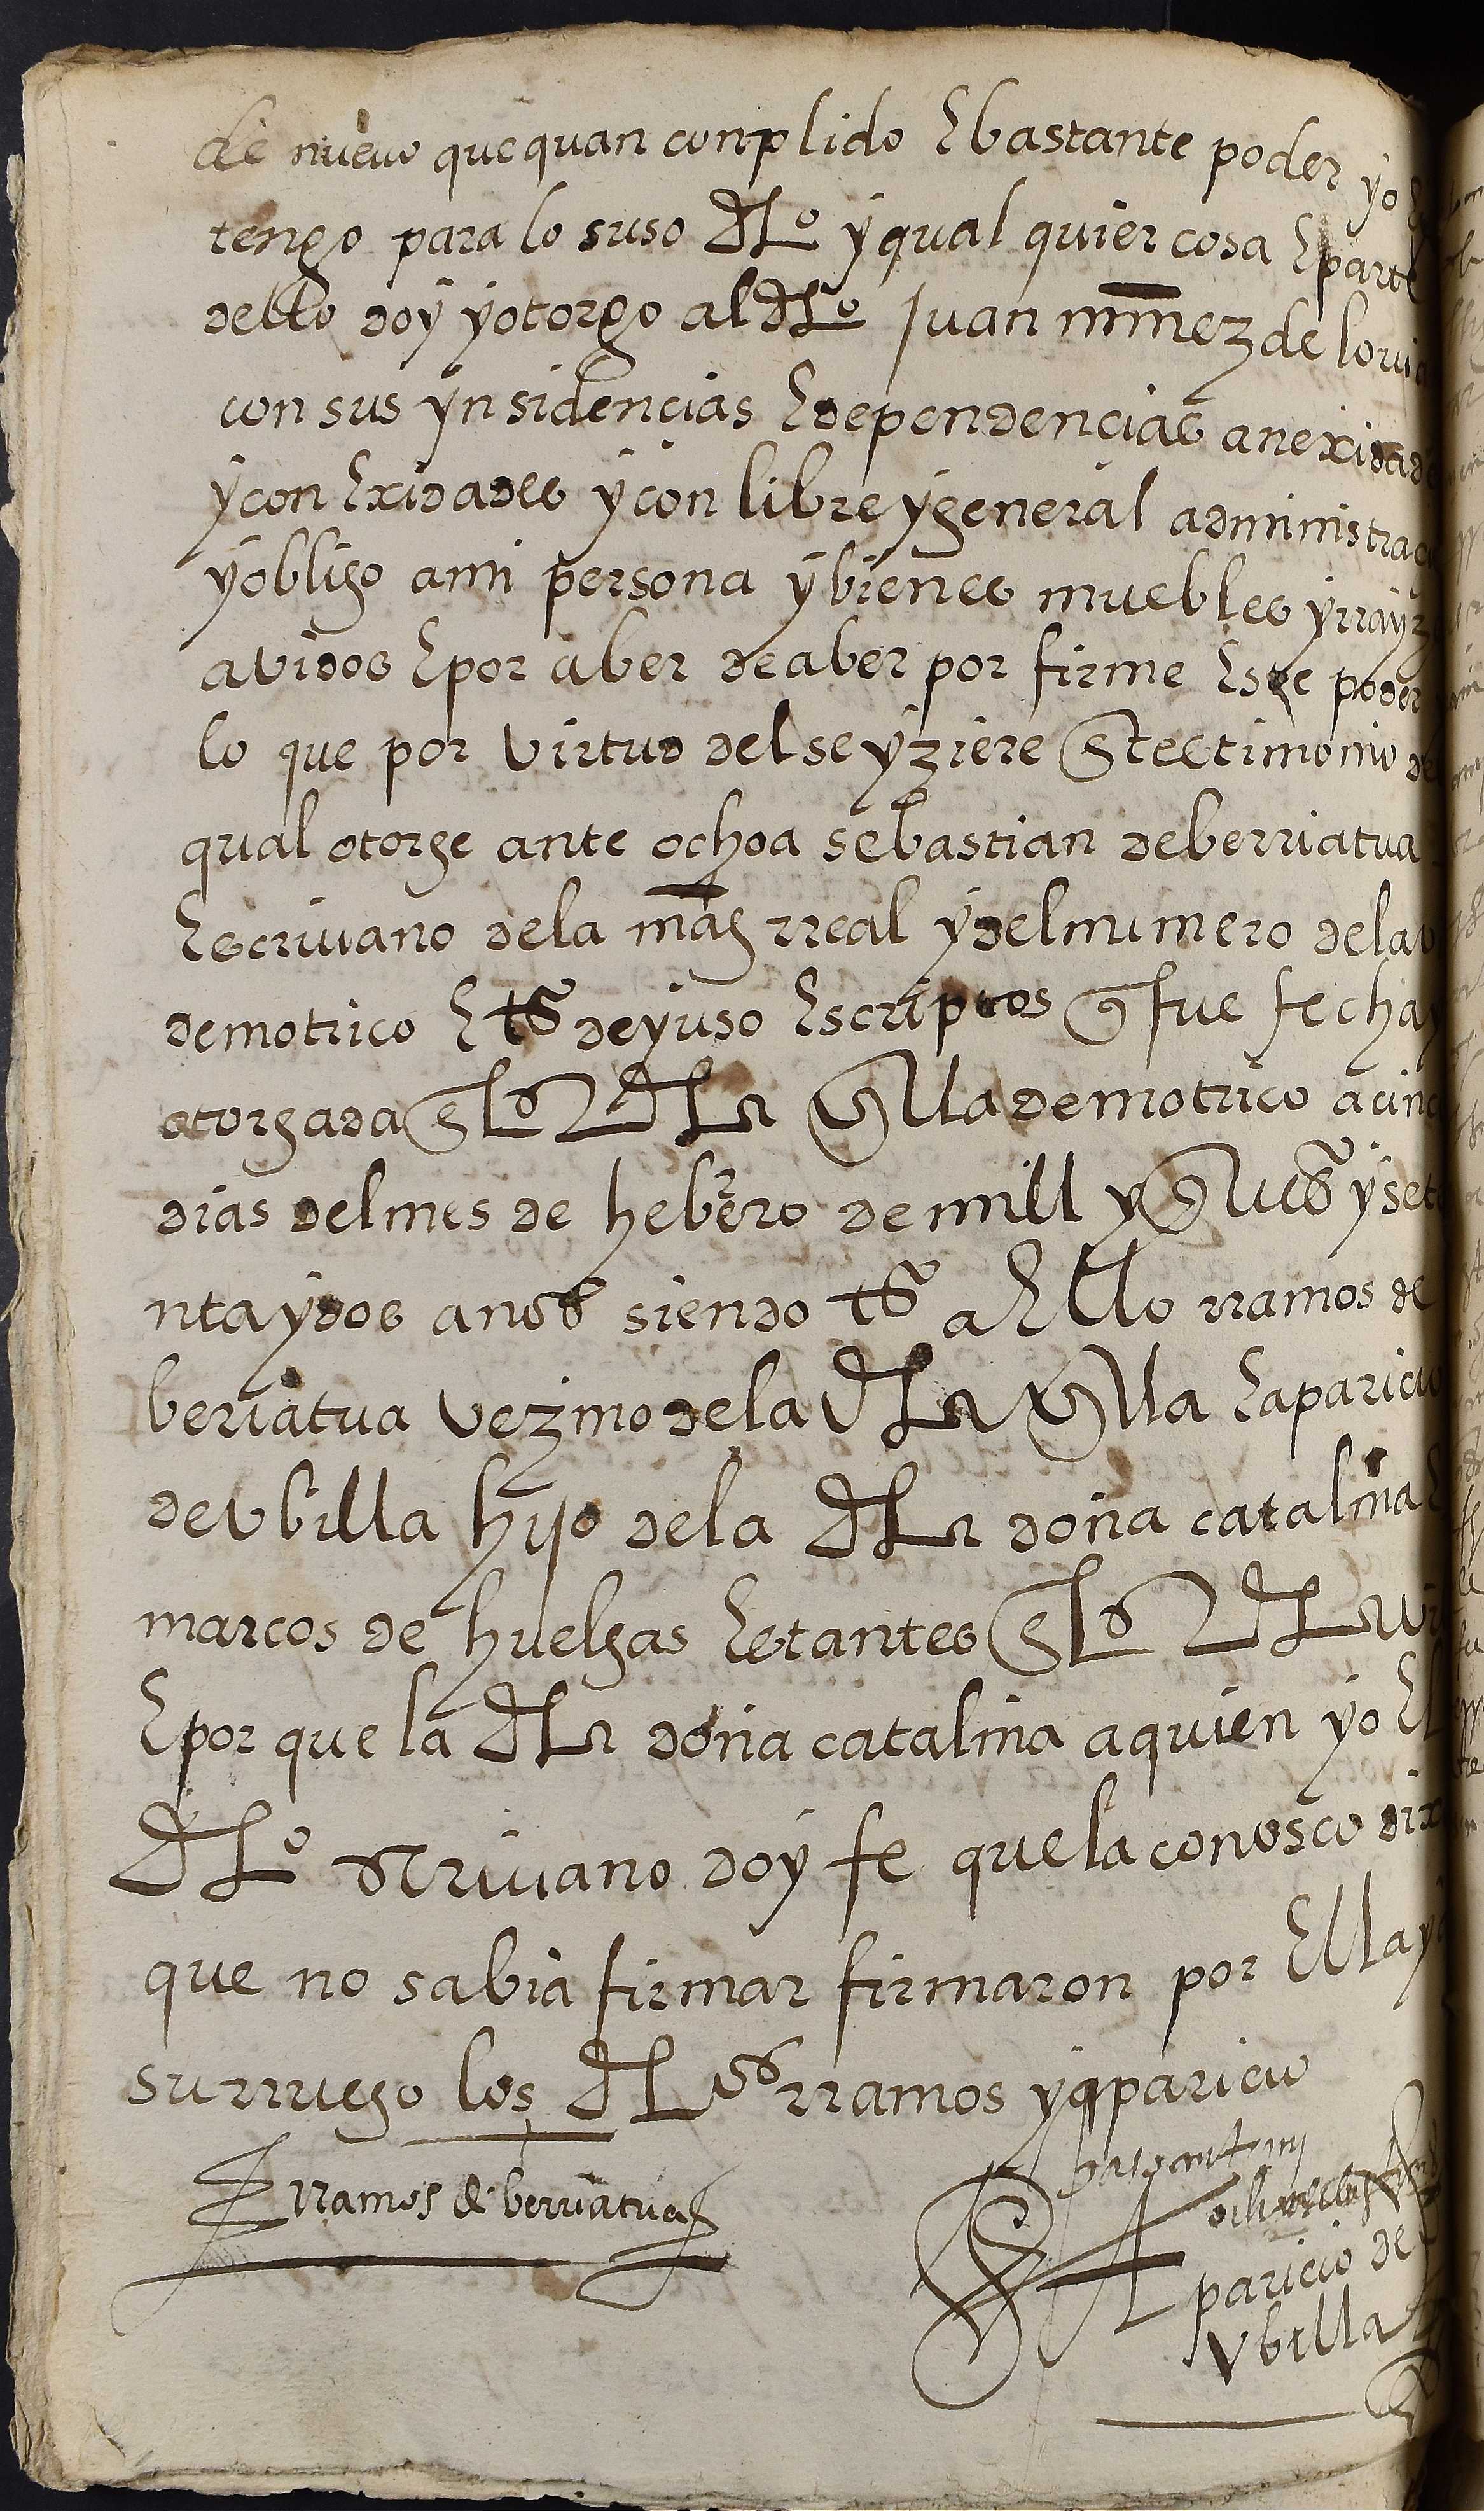 de nuevo que quan conplido E bastante poder yo
tengo para lo suso dho y qual quier cosa E parte
dello doy y otorgo al dho Juan mrnez de
con sus ynsidencias E dependencias anexidade
y conExidades y con libre y general administraci
y obligo a mi persona y bienes muebles y rrayz
avidos E por aber de aber por firme Este poder
lo que por virtud del se yziere En testimonio de
qual otorge ante ochoa sebastian de berriatua
Escrivano de la mag rreal y del numero de la v
de motrico E tos de yuso Escriptos que fue fecha y
otorgada En la dha villa de motrico a cinc
dias del mes de hebrero de mill y quios y sete
nta y dos anos siendo tos a Ello rramos de
beriatua vezino de la dha villa E aparicio
de Ubilla hijo de la dha dona catalina
marcos de huelgas Estantes En la dha vi
E por que la dha dona catalina a quien yo El
dho Escrivano doy fe que la conosco dix
que no sabia firmar firmaron por Ella y a
su rruego los dhos rramos y aparicio
rramos de beriatua
paso ante mi
aparicio de
Ubilla